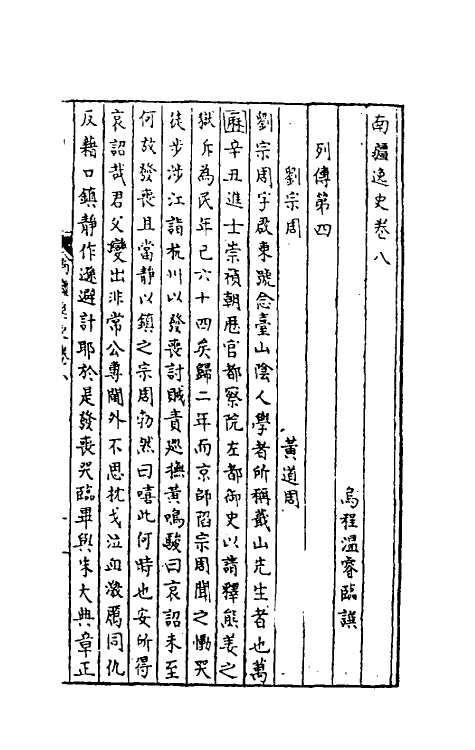 南疆逸史卷八
烏程溫睿臨譔
列傳第四
劉宗周　黃道周
劉宗周字啟東號念臺山陰人學者所稱蕺山先生者也萬
曆辛丑進士崇禎朝歷官都察院左都御史以請釋熊姜之
獄斥為民年已六十四矣歸二年而京師陷宗周聞之慟哭
徒步涉江詣杭州以發喪討賊責巡撫黃鳴駿曰哀詔未至
何故發喪且當靜以鎮之宗周勃然曰嘻此何時也安所得
哀詔哉君父變出非常公專閫外不思枕戈泣血激厲同仇
反藉口鎮靜作遜避計耶於是發喪哭臨畢與朱大典章正
南疆逸史卷八
一